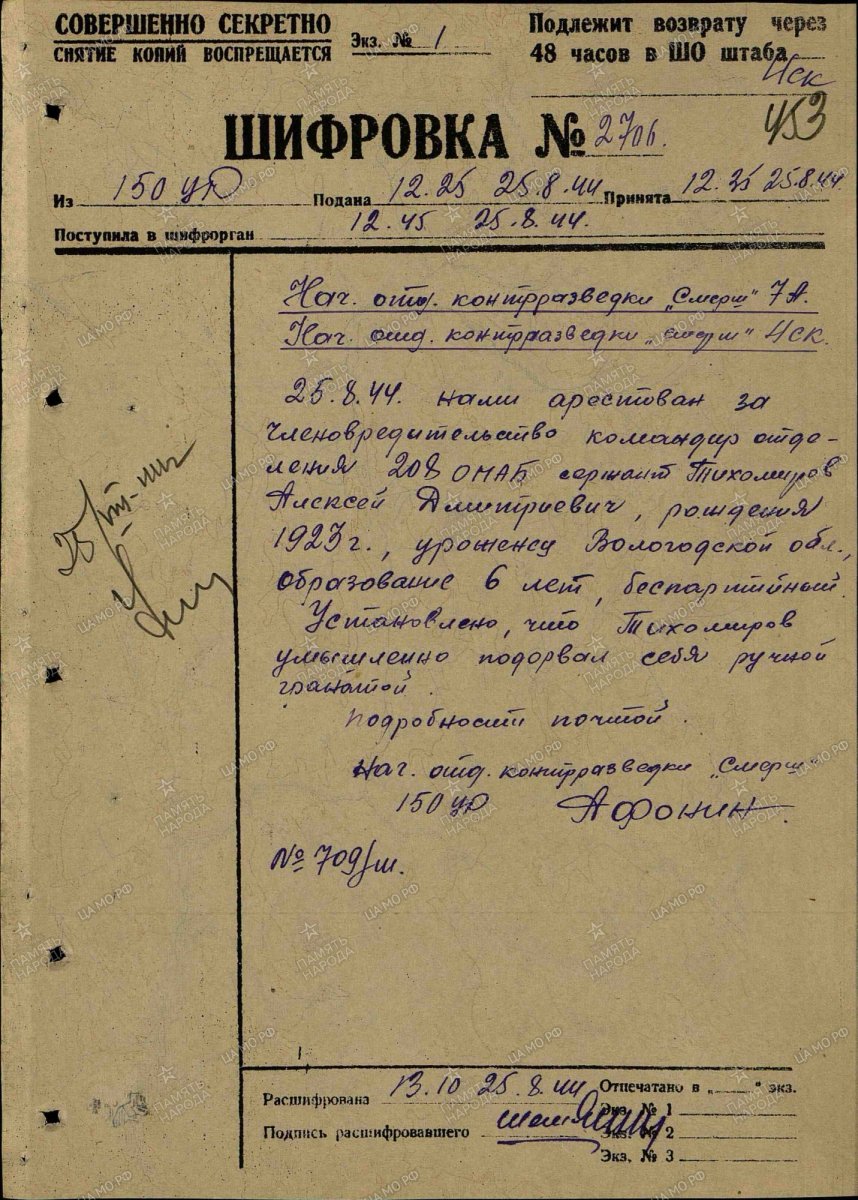 СОВЕРШЕННО СЕКРЕТНО
СНЯТИЕ КОПИЙ ВОСПРЕЩАЕТСЯ
Экз. № 1
Подлежит возврату через
48 часов в ШО штаба
4ск
453
ШИФРОВКА № 2706.
Из 150 УР Подана 12.25 25.8.44 Принята 12.35 25.8.44.
Поступила в шифрорган 12.45 25.8.44.
Нач. отд. контрразведки „Смерш" 7А.
Нач. отд. контрразведки „Смерш" 4ск.
25.8.44. нами арестован за
членовредительство командир отде-
ления 208 ОПАБ сержант Тихомиров
Алексей Дмитриевич, рождения
1923 г., уроженец Вологодской обл.,
образование 6 лет, беспартийный.
Установлено, что Тихомиров
умышленно подорвал себя ручной
гранатой.
Подробности почтой.
Нач. отд. контрразведки „Смерш"
150 УР Афонин.
№ 709/ш.
Расшифрована 13.10 25.8.44
Подпись расшифровавшего
Отпечатано в „ " экз.
Экз. № 1
Экз. № 2
Экз. № 3
ПАМЯТЬ НАРОДА
ЦАМО.РФ